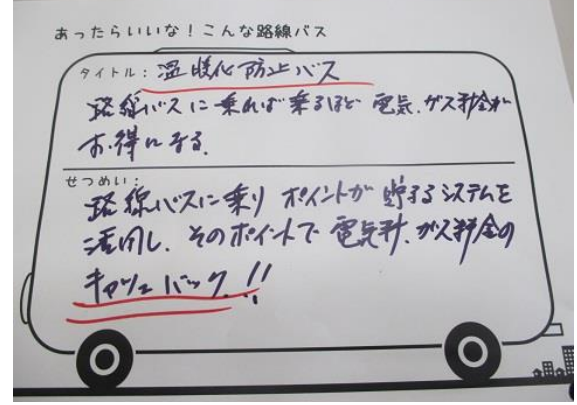 あったらいいな!こんな路線バス
タイトル: 温暖化防止バス
路線バスに乗れば乗るほど 電気.ガス料金が
お得になる.
せつめい:
路線バスに乗り ポイントが 貯まるシステムを
活用し、そのポイントで 電気料.ガス料金の
キャッシュバック!!